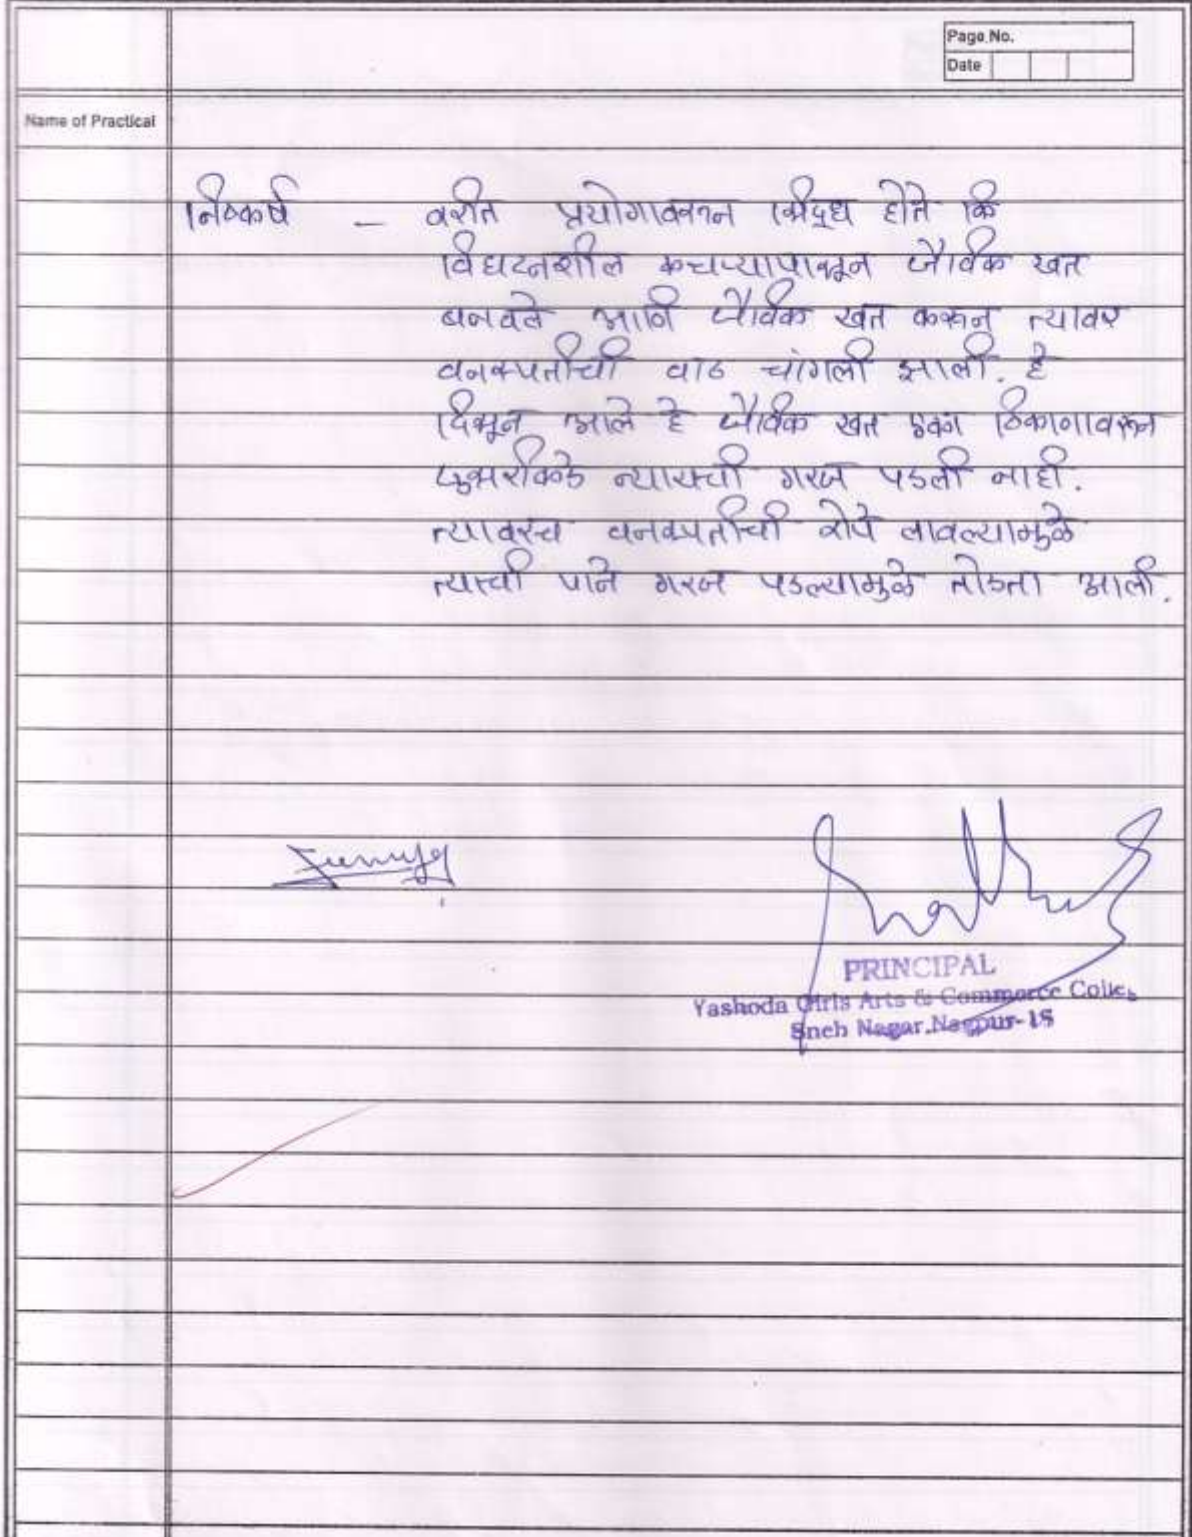 Page No.
Date
Name of Practical
निष्कर्ष – वरील प्रयोगावरून सिद्ध होते कि
विघटनशील कचऱ्यापासून जैविक खत
बनवते आणि जैविक खत करून त्यावर
वनस्पतीची वाढ चांगली झाली. हे
दिसून आले हे जैविक खत एका ठिकाणावरून
दुसरीकडे न्यायची गरज पडली नाही.
त्यावरच वनस्पतीची रोपे लावल्यामुळे
त्याची पाने गरज पडल्यामुळे तोडता आली.
PRINCIPAL
Yashoda Girls Arts & Commerce Colleg
Sneh Nagar, Nagpur-15